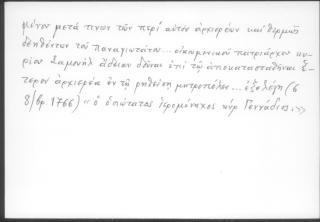 μένου μετά τινων τῶν περί αὐτόν ἀρχιερέων καί θερμῶς
δεηθέντων τοῦ παναγιωτάτου... οἰκουμενικοῦ πατριάρχου κυ-
ρίου Σαμουήλ ἄδειαν δοῦναι ἐπί τῷ ἀποκατασταθῆναι ἕ-
τερον ἀρχιερέα ἐν τῇ ῥηθείσῃ μητροπόλει... ἐξελέγη (6
8/βρ. 1766) "ὁ ὁσιώτατος ἱερομόναχος κύρ Γεννάδιος.»